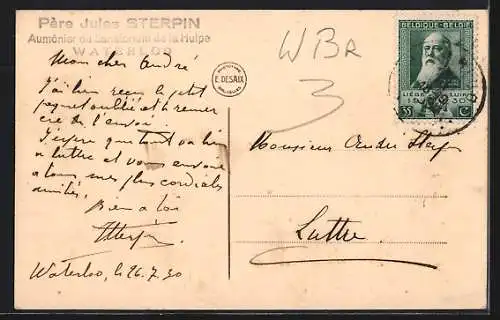 Père Jules STERPIN
Aumônier du Sanatorium de la Hulpe
WATERLOO
Mon cher André
J'ai bien reçu le petit
paquet oublié et te remer
cie de l'envoi.
J'espère que tout va bien
à Luttre et vous envoie
à tous mes plus cordiales
amitiés.
Bien à toi
JSterpin
Waterloo, le 26.7.30
E. DESAIX
WBR
3
BELGIQUE-BELGIË
LIÉGE LUIK
1930
35 C
Monsieur André Sterpin
Luttre.